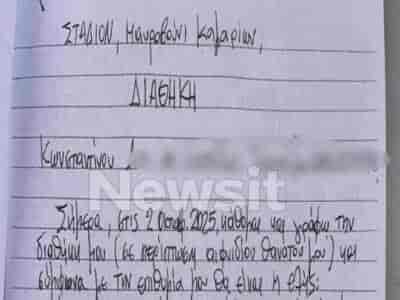 ΣΤΑΔΙΟΝ, Μαυροβούνι Καμαρίων,
ΔΙΑΘΗΚΗ
Κωνσταντίνου
Newsit
Σήμερα, στις 2 2025, κάθομαι και γράφω την
διαθήκη μου (σε περίπτωση αιφνιδίου θανάτου μου) και
σύμφωνα με την επιθυμία μου θα είναι η εξής: